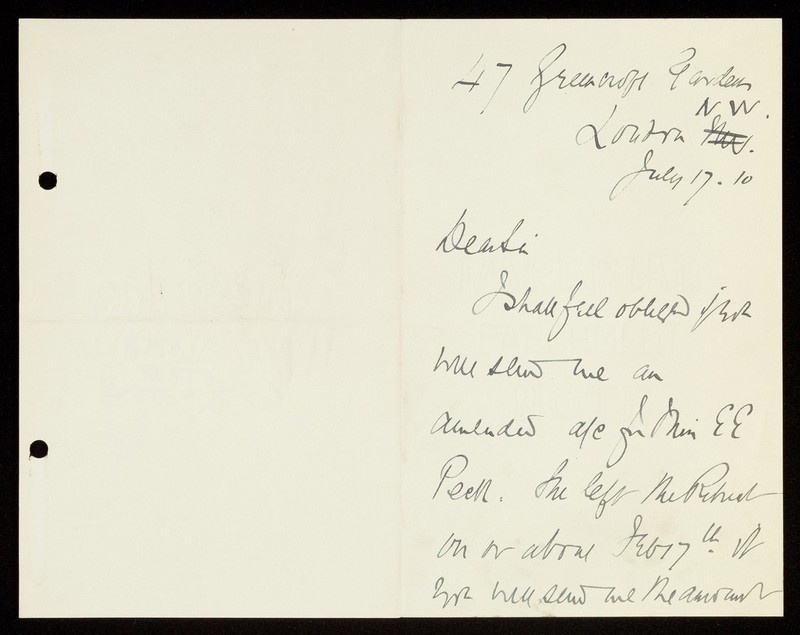 47 Greencroft Gardens
N W.
London
July 17. 10
Dear Sir
I shall feel obliged if you
will send me an
amended a/c for Miss E E
Peck. She left the Retreat
on or about Feb 17th. If
you will send me the amount